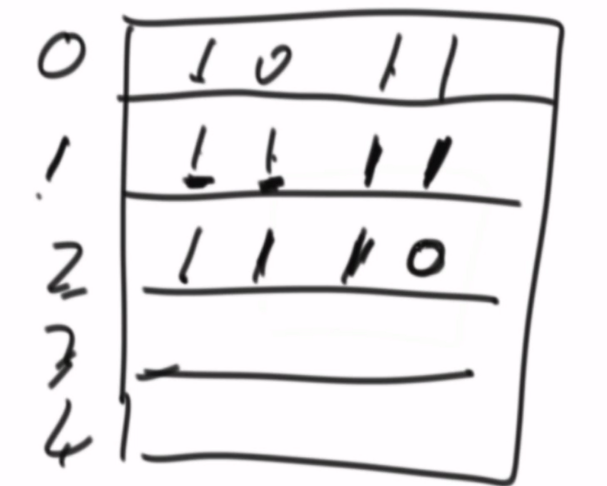 0 1 0 1 1
1 1 1 1 1
2 1 1 1 0
3
4